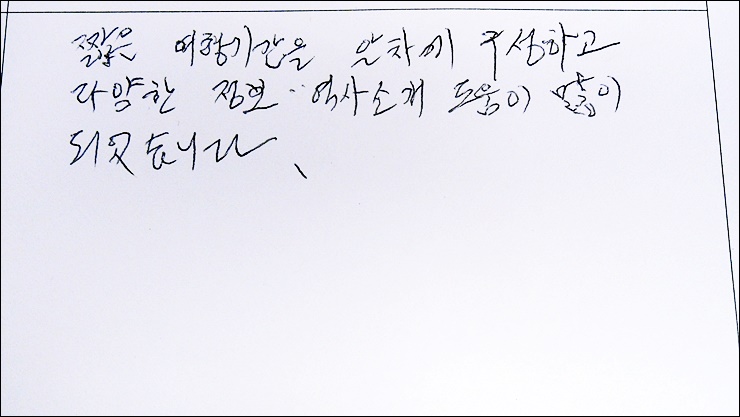 짧은 여행기간을 알차게 구성하고
다양한 정보·역사소개 도움이 많이
되었습니다.